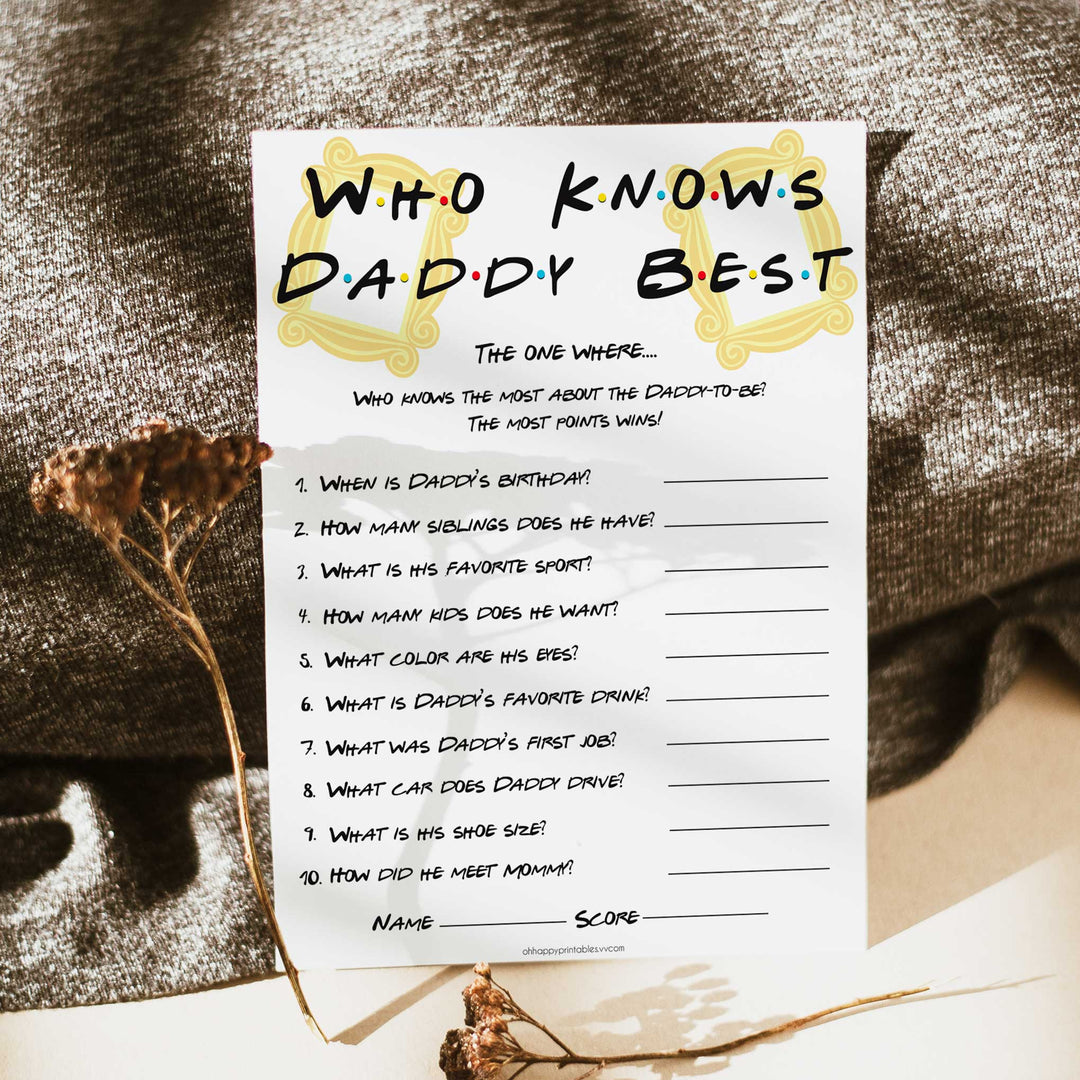 W·H·O K·N·O·W·S
D·A·D·D·Y B·E·S·T
THE ONE WHERE....
WHO KNOWS THE MOST ABOUT THE DADDY-TO-BE?
THE MOST POINTS WINS!
1. WHEN IS DADDY'S BIRTHDAY?
2. HOW MANY SIBLINGS DOES HE HAVE?
3. WHAT IS HIS FAVORITE SPORT?
4. HOW MANY KIDS DOES HE WANT?
5. WHAT COLOR ARE HIS EYES?
6. WHAT IS DADDY'S FAVORITE DRINK?
7. WHAT WAS DADDY'S FIRST JOB?
8. WHAT CAR DOES DADDY DRIVE?
9. WHAT IS HIS SHOE SIZE?
10. HOW DID HE MEET MOMMY?
NAME SCORE
ohhappyprintables.vvcom